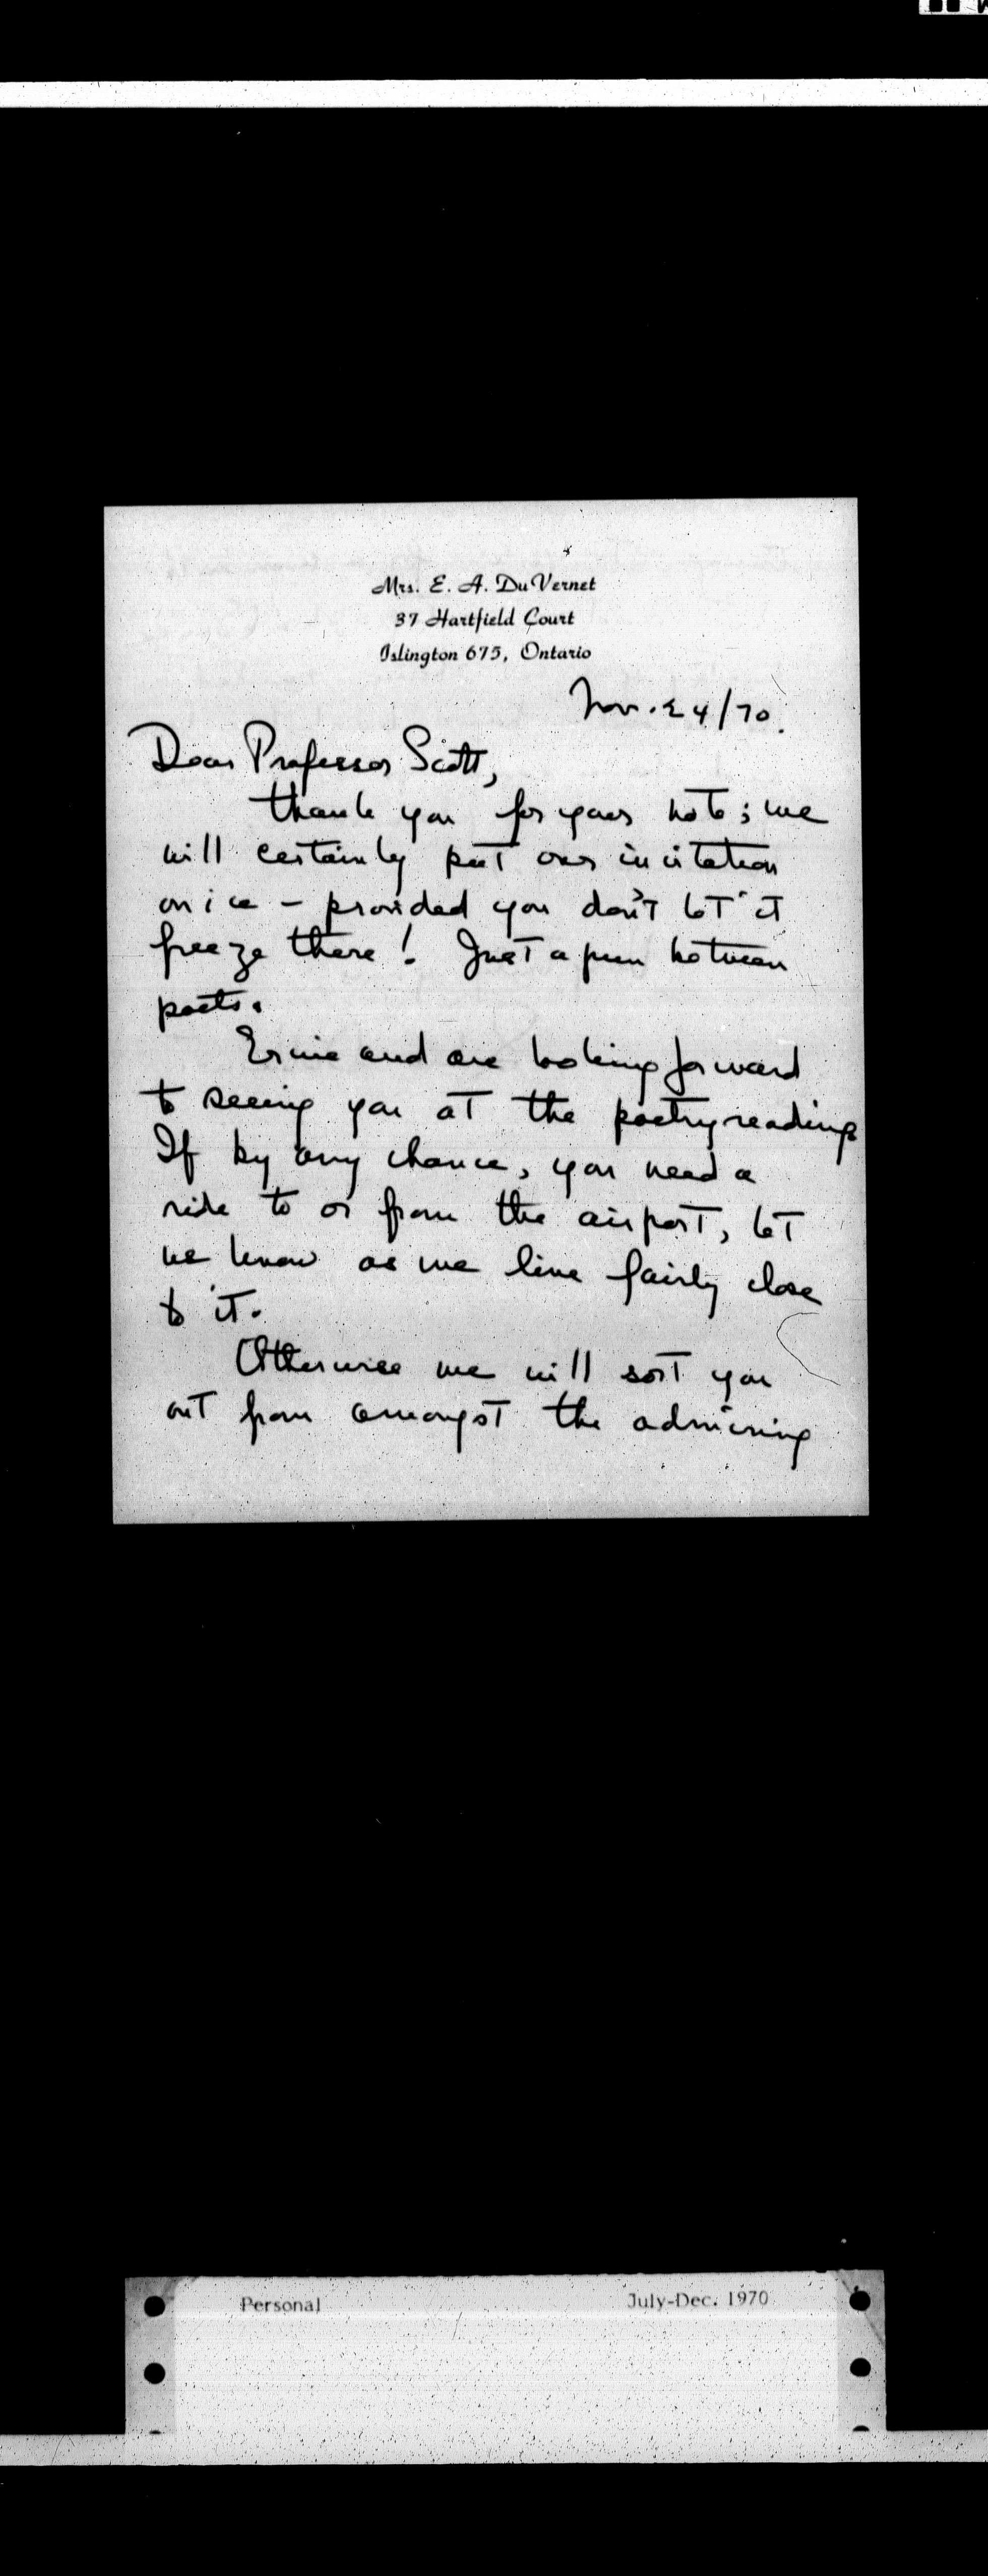 Mrs. E. A. DuVernet
37 Hartfield Court
Islington 675, Ontario
Nov. 24/70.
Dear Professor Scott,
Thank you for your note; we
will certainly put our invitation
on ice - provided you don't let it
freeze there! Just a pun between
poets.
Ernie and are looking forward
to seeing you at the poetry reading.
If by any chance, you need a
ride to or from the airport, let
me know as we live fairly close
to it.
Otherwise we will sort you
out from amongst the admiring
Personal
July-Dec. 1970